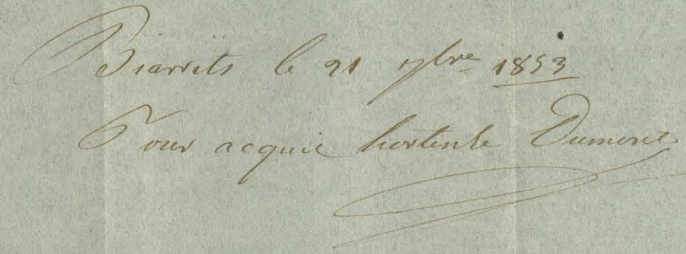 Biarrits le 21 7bre 1853
Pour acquie hortense Dumont